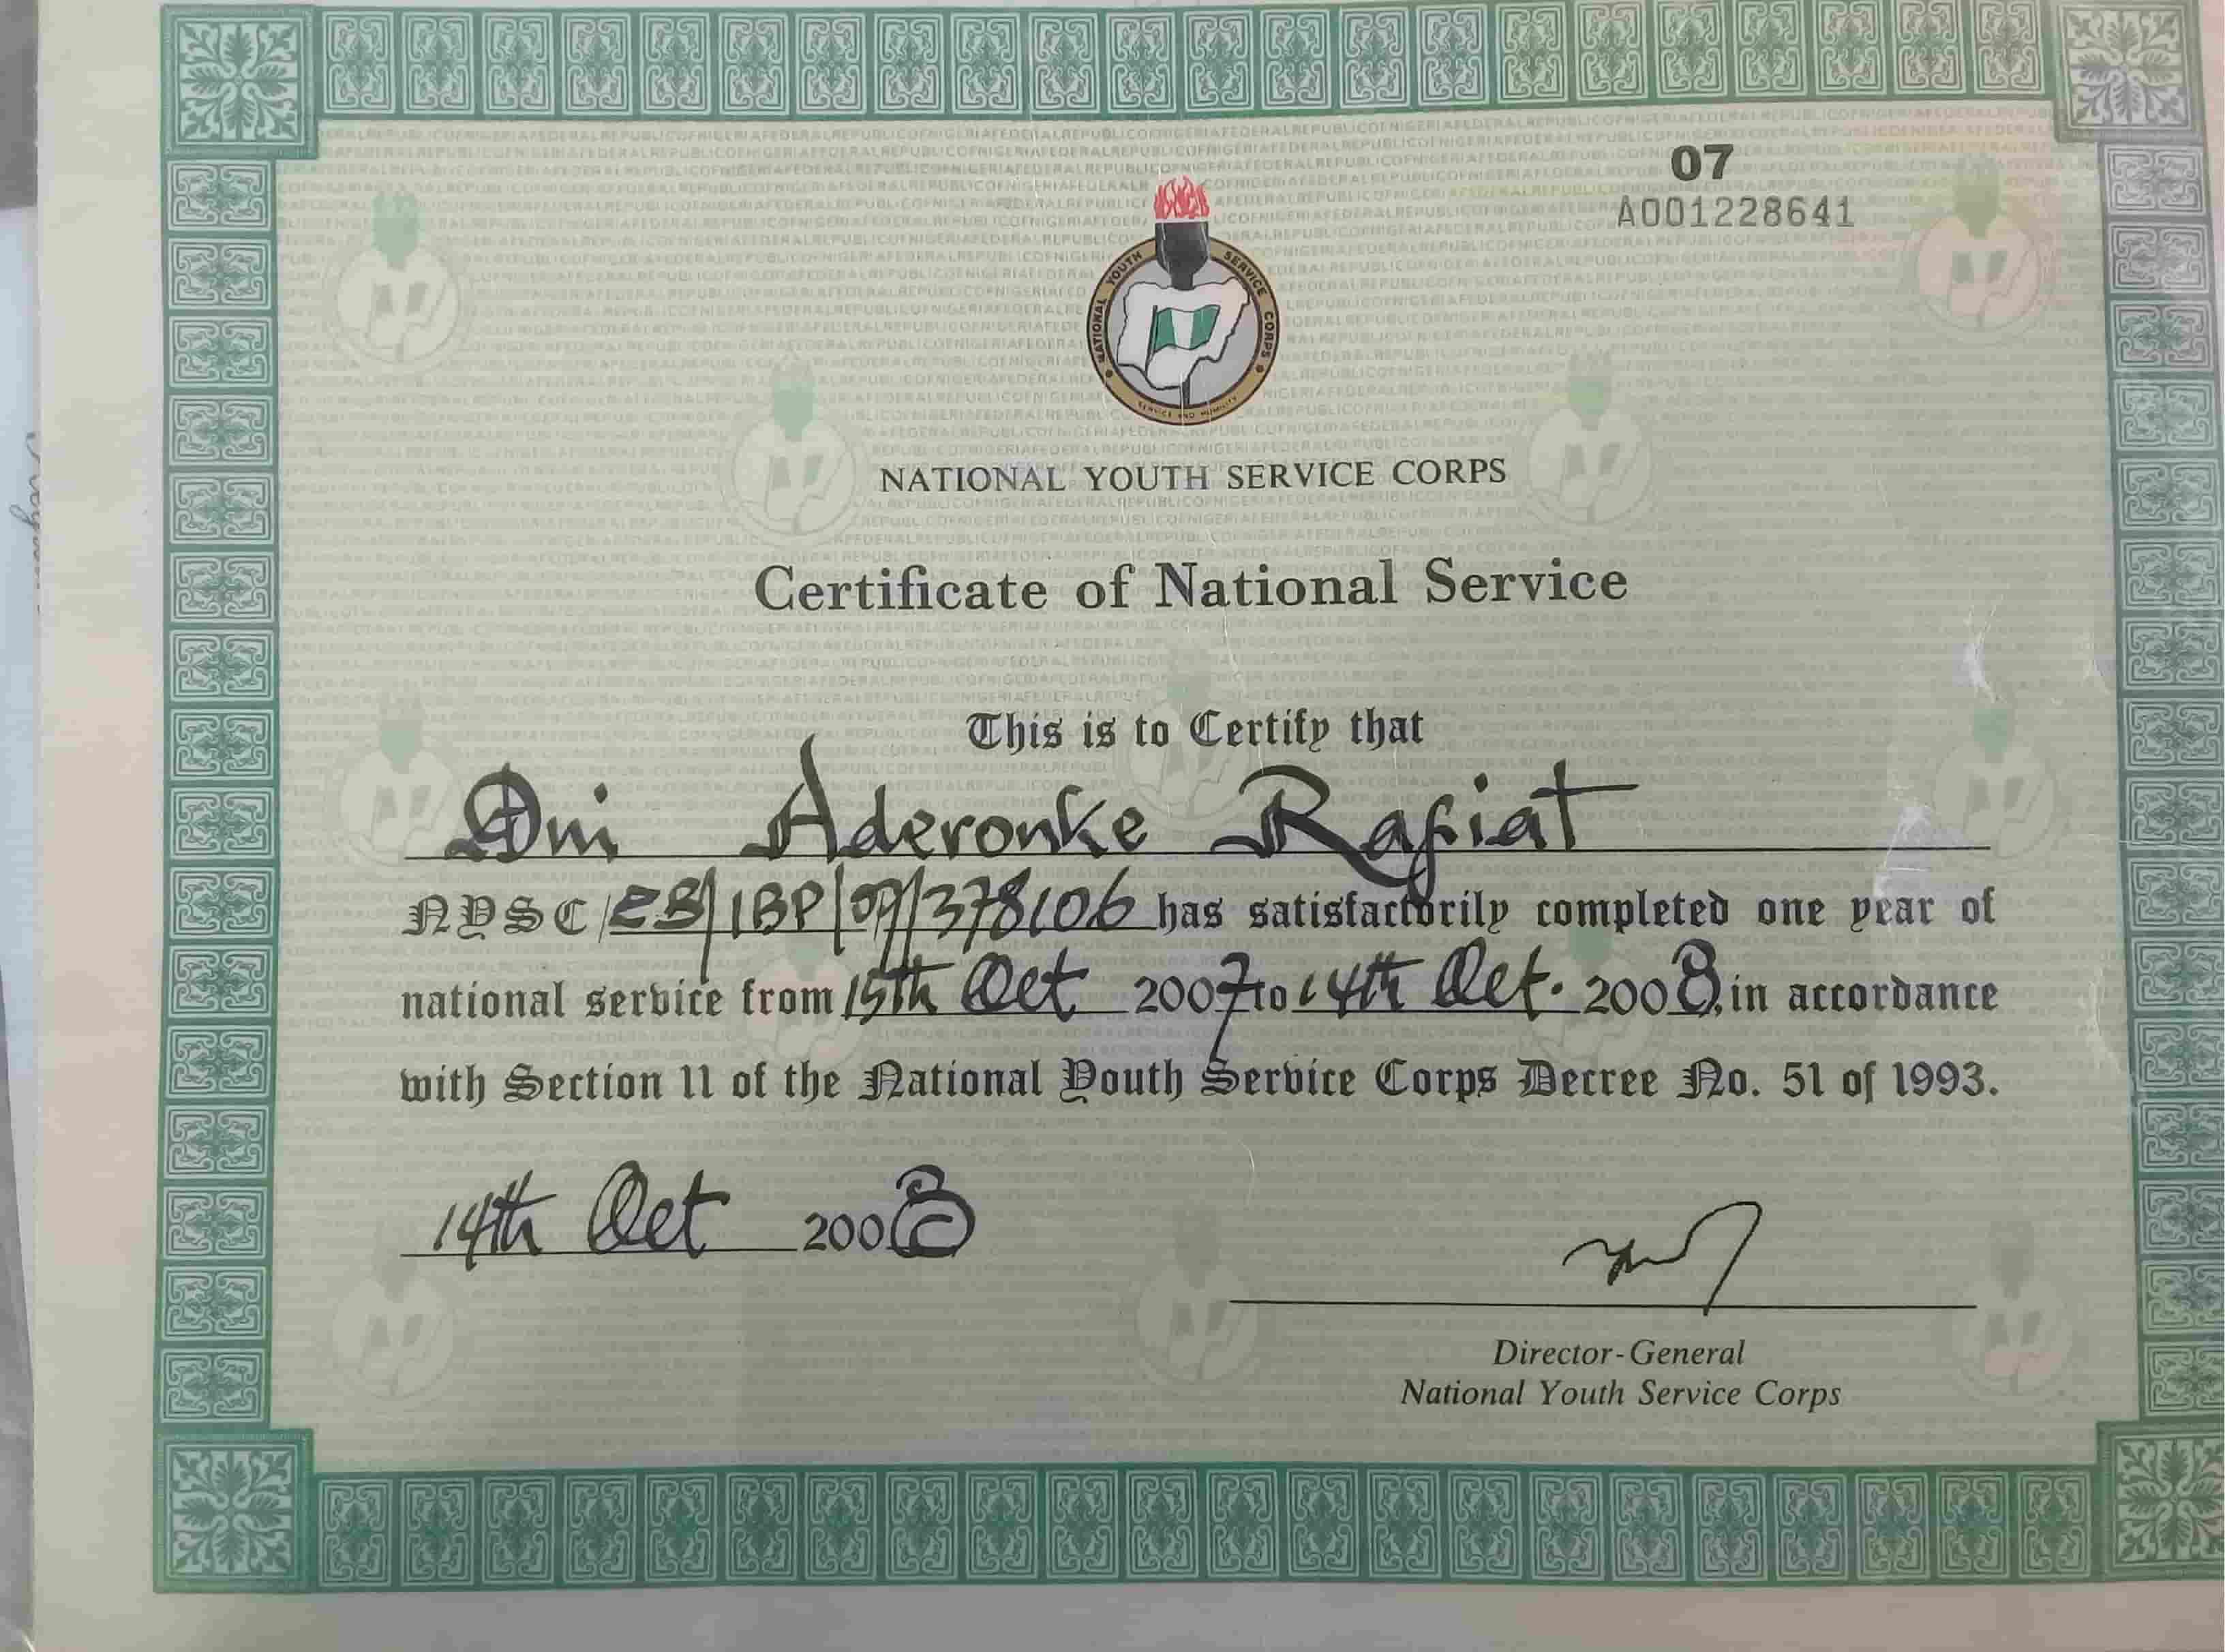 07
A001228641
NATIONAL YOUTH SERVICE CORPS
SERVICE AND HUMILITY
NATIONAL YOUTH SERVICE CORPS
Certificate of National Service
This is to Certify that
Oni Aderonke Rafiat
NYSC/EB/IBP/07/378106 has satisfactorily completed one year of
national service from 15th Oct 2007 to 14th Oct. 2008, in accordance
with Section 11 of the National Youth Service Corps Decree No. 51 of 1993.
14th Oct 2008
Director-General
National Youth Service Corps